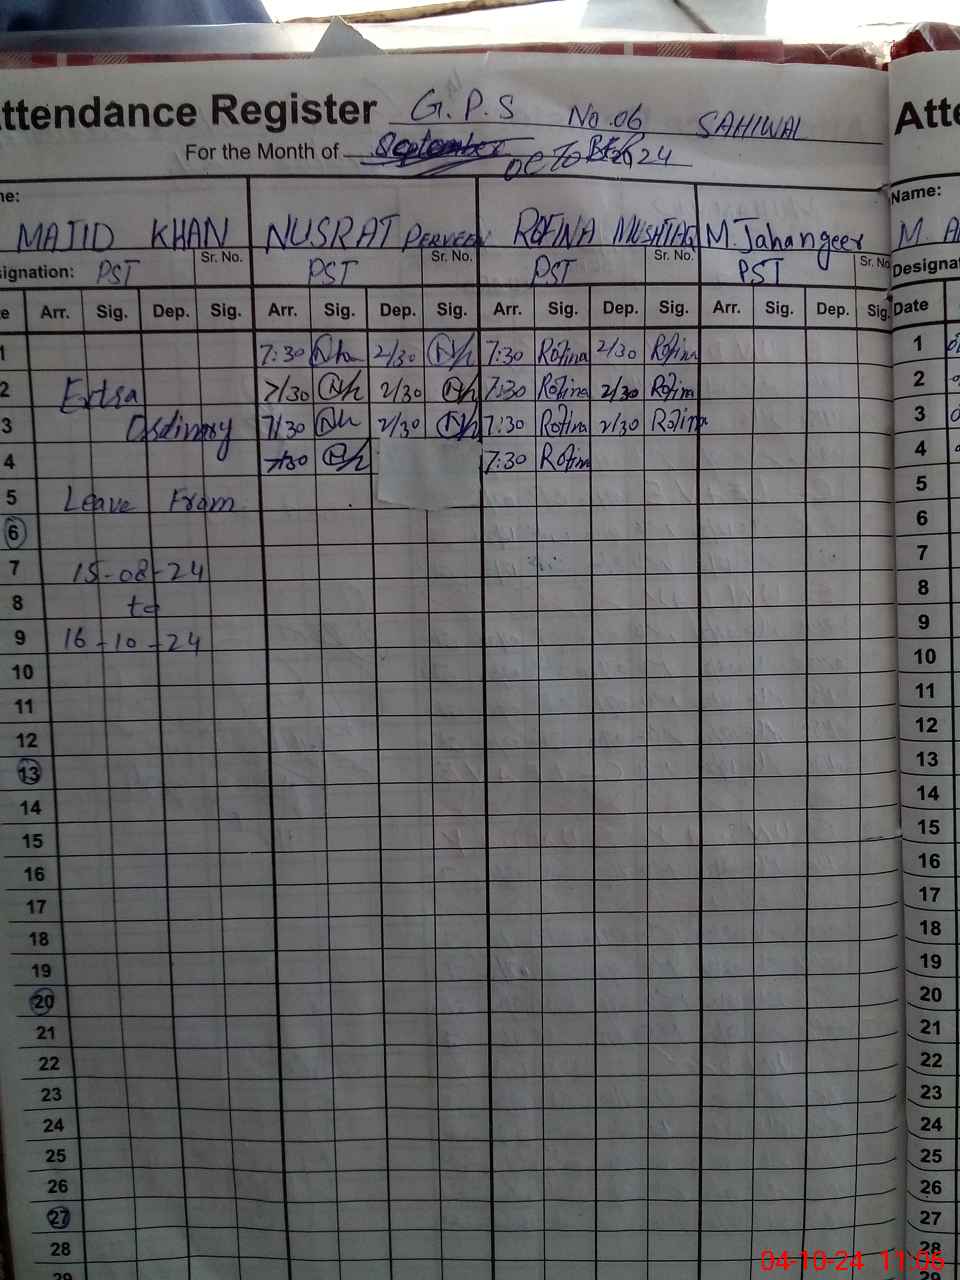 ttendance Register G.P.S No.06 SAHIWAL
For the Month of September OCTOBER 2024
ne: MAJID KHAN NUSRAT PERVEEN ROFINA MUSHTAQ M. Jahangeer
signation: PST Sr. No. PST Sr. No. PST Sr. No. PST Sr. No
e Arr. Sig. Dep. Sig. Arr. Sig. Dep. Sig. Arr. Sig. Dep. Sig. Arr. Sig. Dep. Sig.
1 7:30 2/30 7:30 Rofina 2/30 Rofina
2 Extra 7/30 2/30 7:30 Rofina 2/30 Rofina
3 Ordinary 7/30 2/30 7:30 Rofina 2/30 Rofina
4 7:30 7:30 Rofina
5 Leave From
6
7 15-08-24
8 to
9 16-10-24
10
11
12
13
14
15
16
17
18
19
20
21
22
23
24
25
26
27
28
29
Atte
Name: M. A
Designat
Date
1
2
3
4
5
6
7
8
9
10
11
12
13
14
15
16
17
18
19
20
21
22
23
24
25
26
27
28
29
04-10-24 11:06